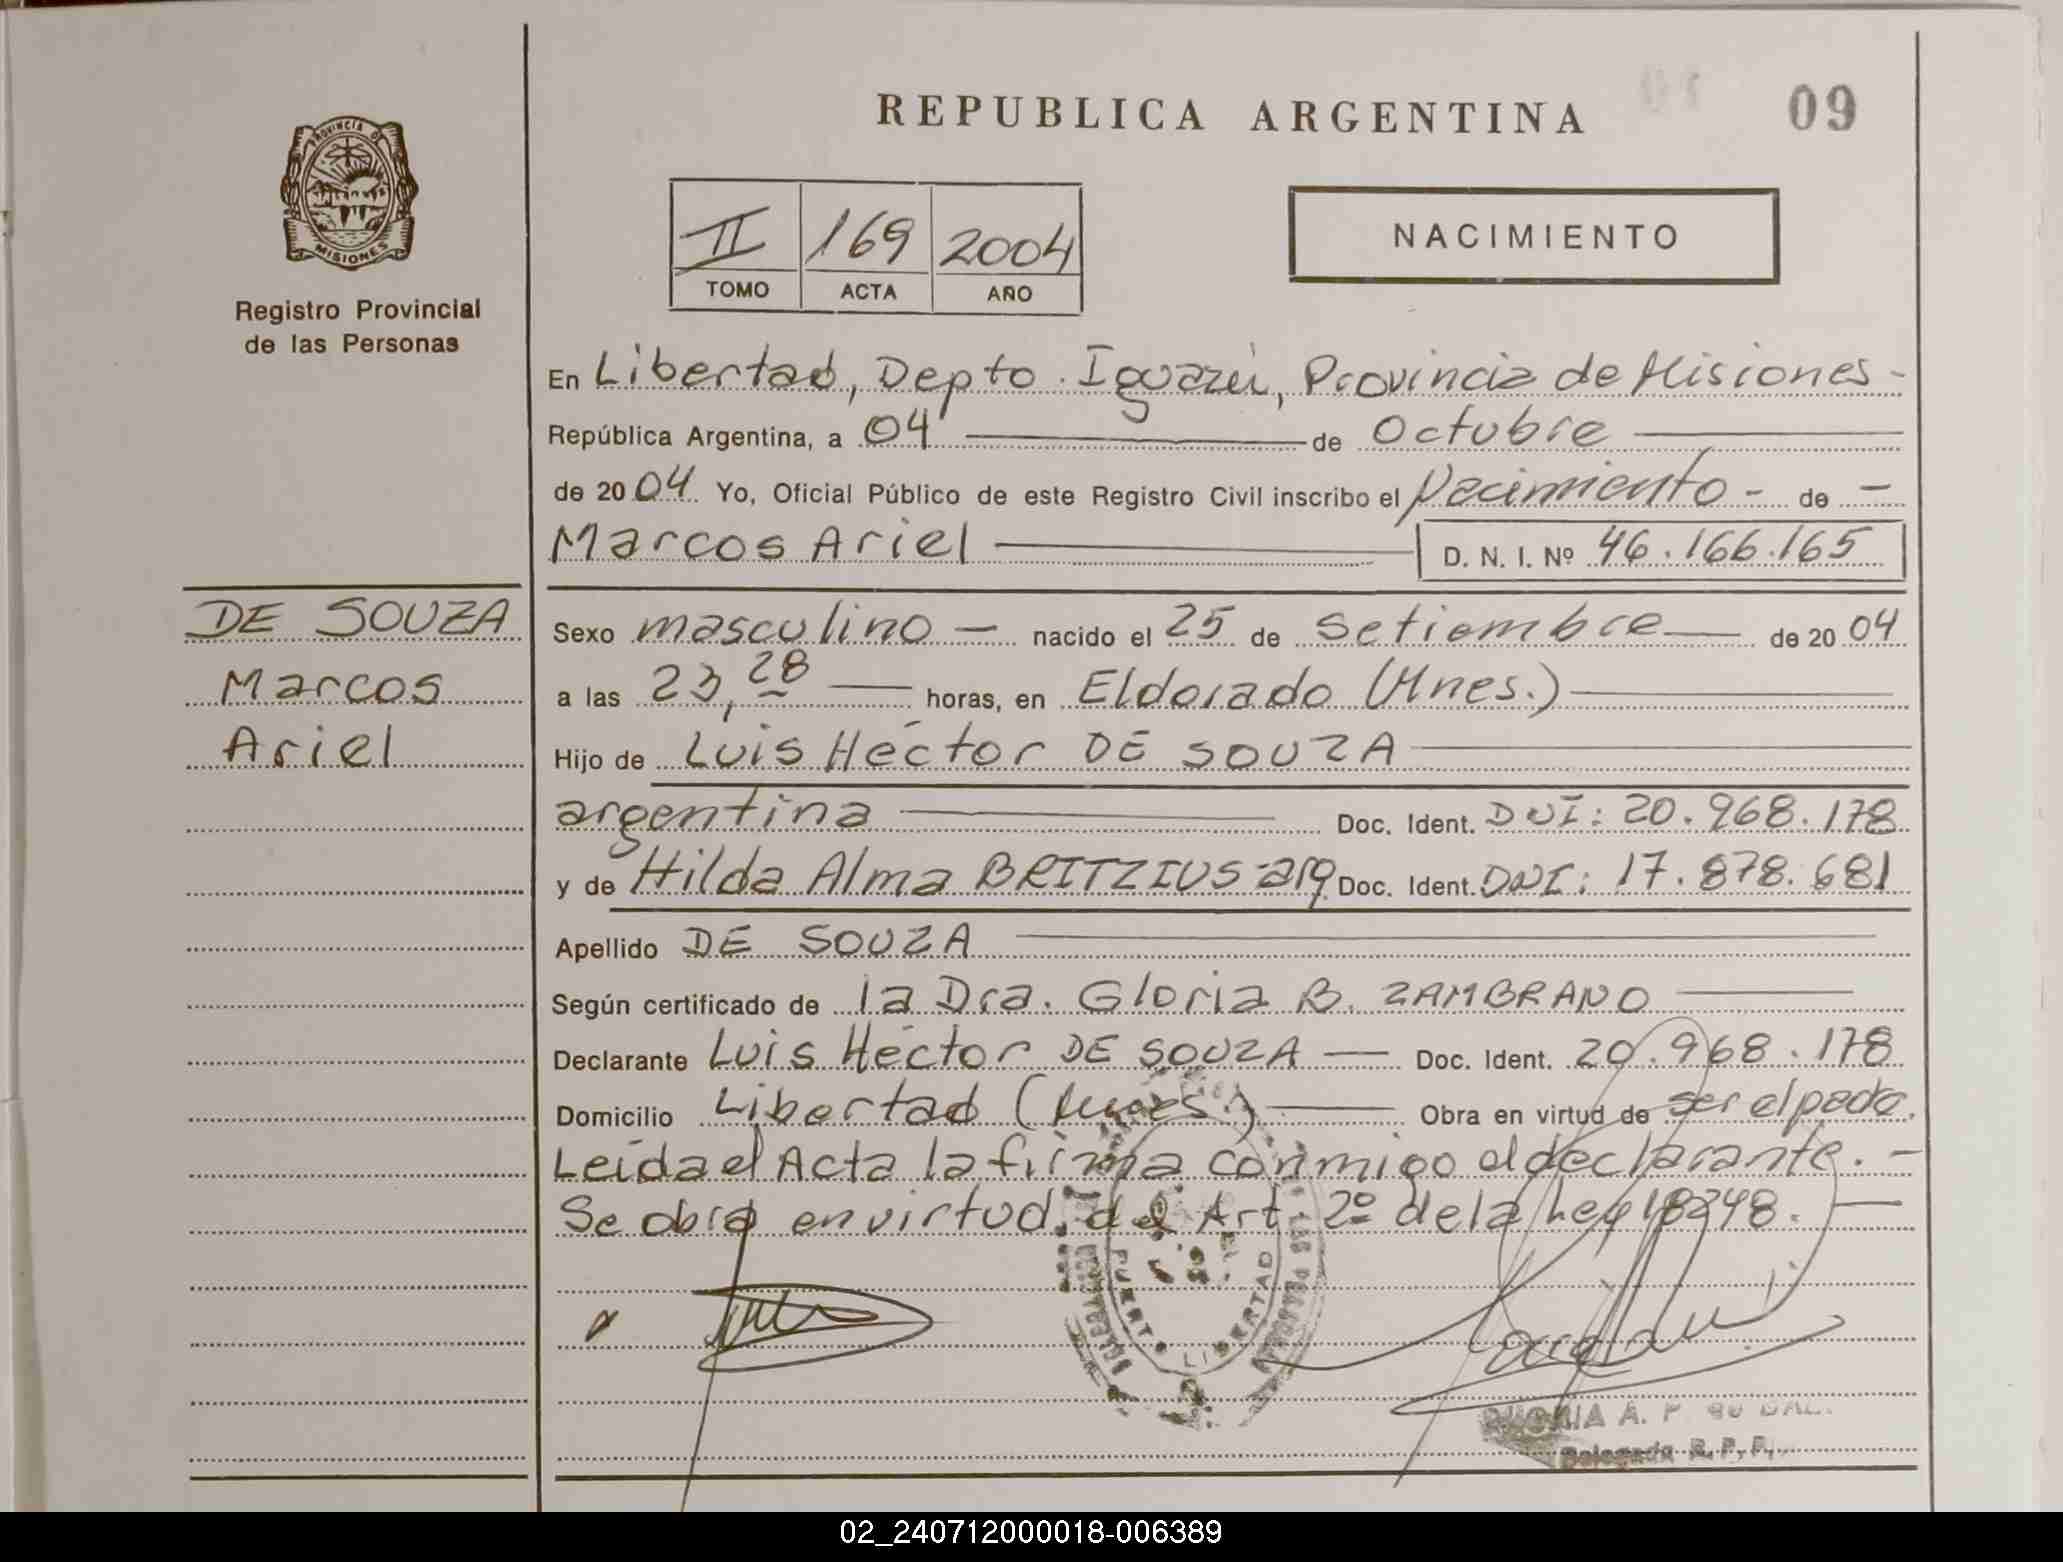 REPUBLICA ARGENTINA
09
PROVINCIA DE
MISIONES
Registro Provincial
de las Personas
II 169 2004
TOMO ACTA AÑO
NACIMIENTO
En Libertad, Depto. Iguazú, Provincia de Misiones -
República Argentina, a 04 de Octubre
de 2004 Yo, Oficial Público de este Registro Civil inscribo el Nacimiento - de -
Marcos Ariel D. N. I. Nº 46.166.165
DE SOUZA
Marcos
Ariel
Sexo masculino - nacido el 25 de Setiembre de 2004
a las 23,28 horas, en Eldorado (Mnes.)
Hijo de Luis Héctor DE SOUZA
argentina Doc. Ident. DNI: 20.968.178
y de Hilda Alma BRITZIUS - arg. Doc. Ident. DNI: 17.878.681
Apellido DE SOUZA
Según certificado de la Dra. Gloria B. ZAMBRANO
Declarante Luis Héctor DE SOUZA Doc. Ident. 20.968.178
Domicilio Libertad (Mnes.) Obra en virtud de ser el padre.
Leída el Acta la firma conmigo el declarante. -
Se obra en virtud del Art. 2º de la Ley 18248.
PUERTO LIBERTAD
A. P.
Delegada R. P. P.
02_240712000018-006389